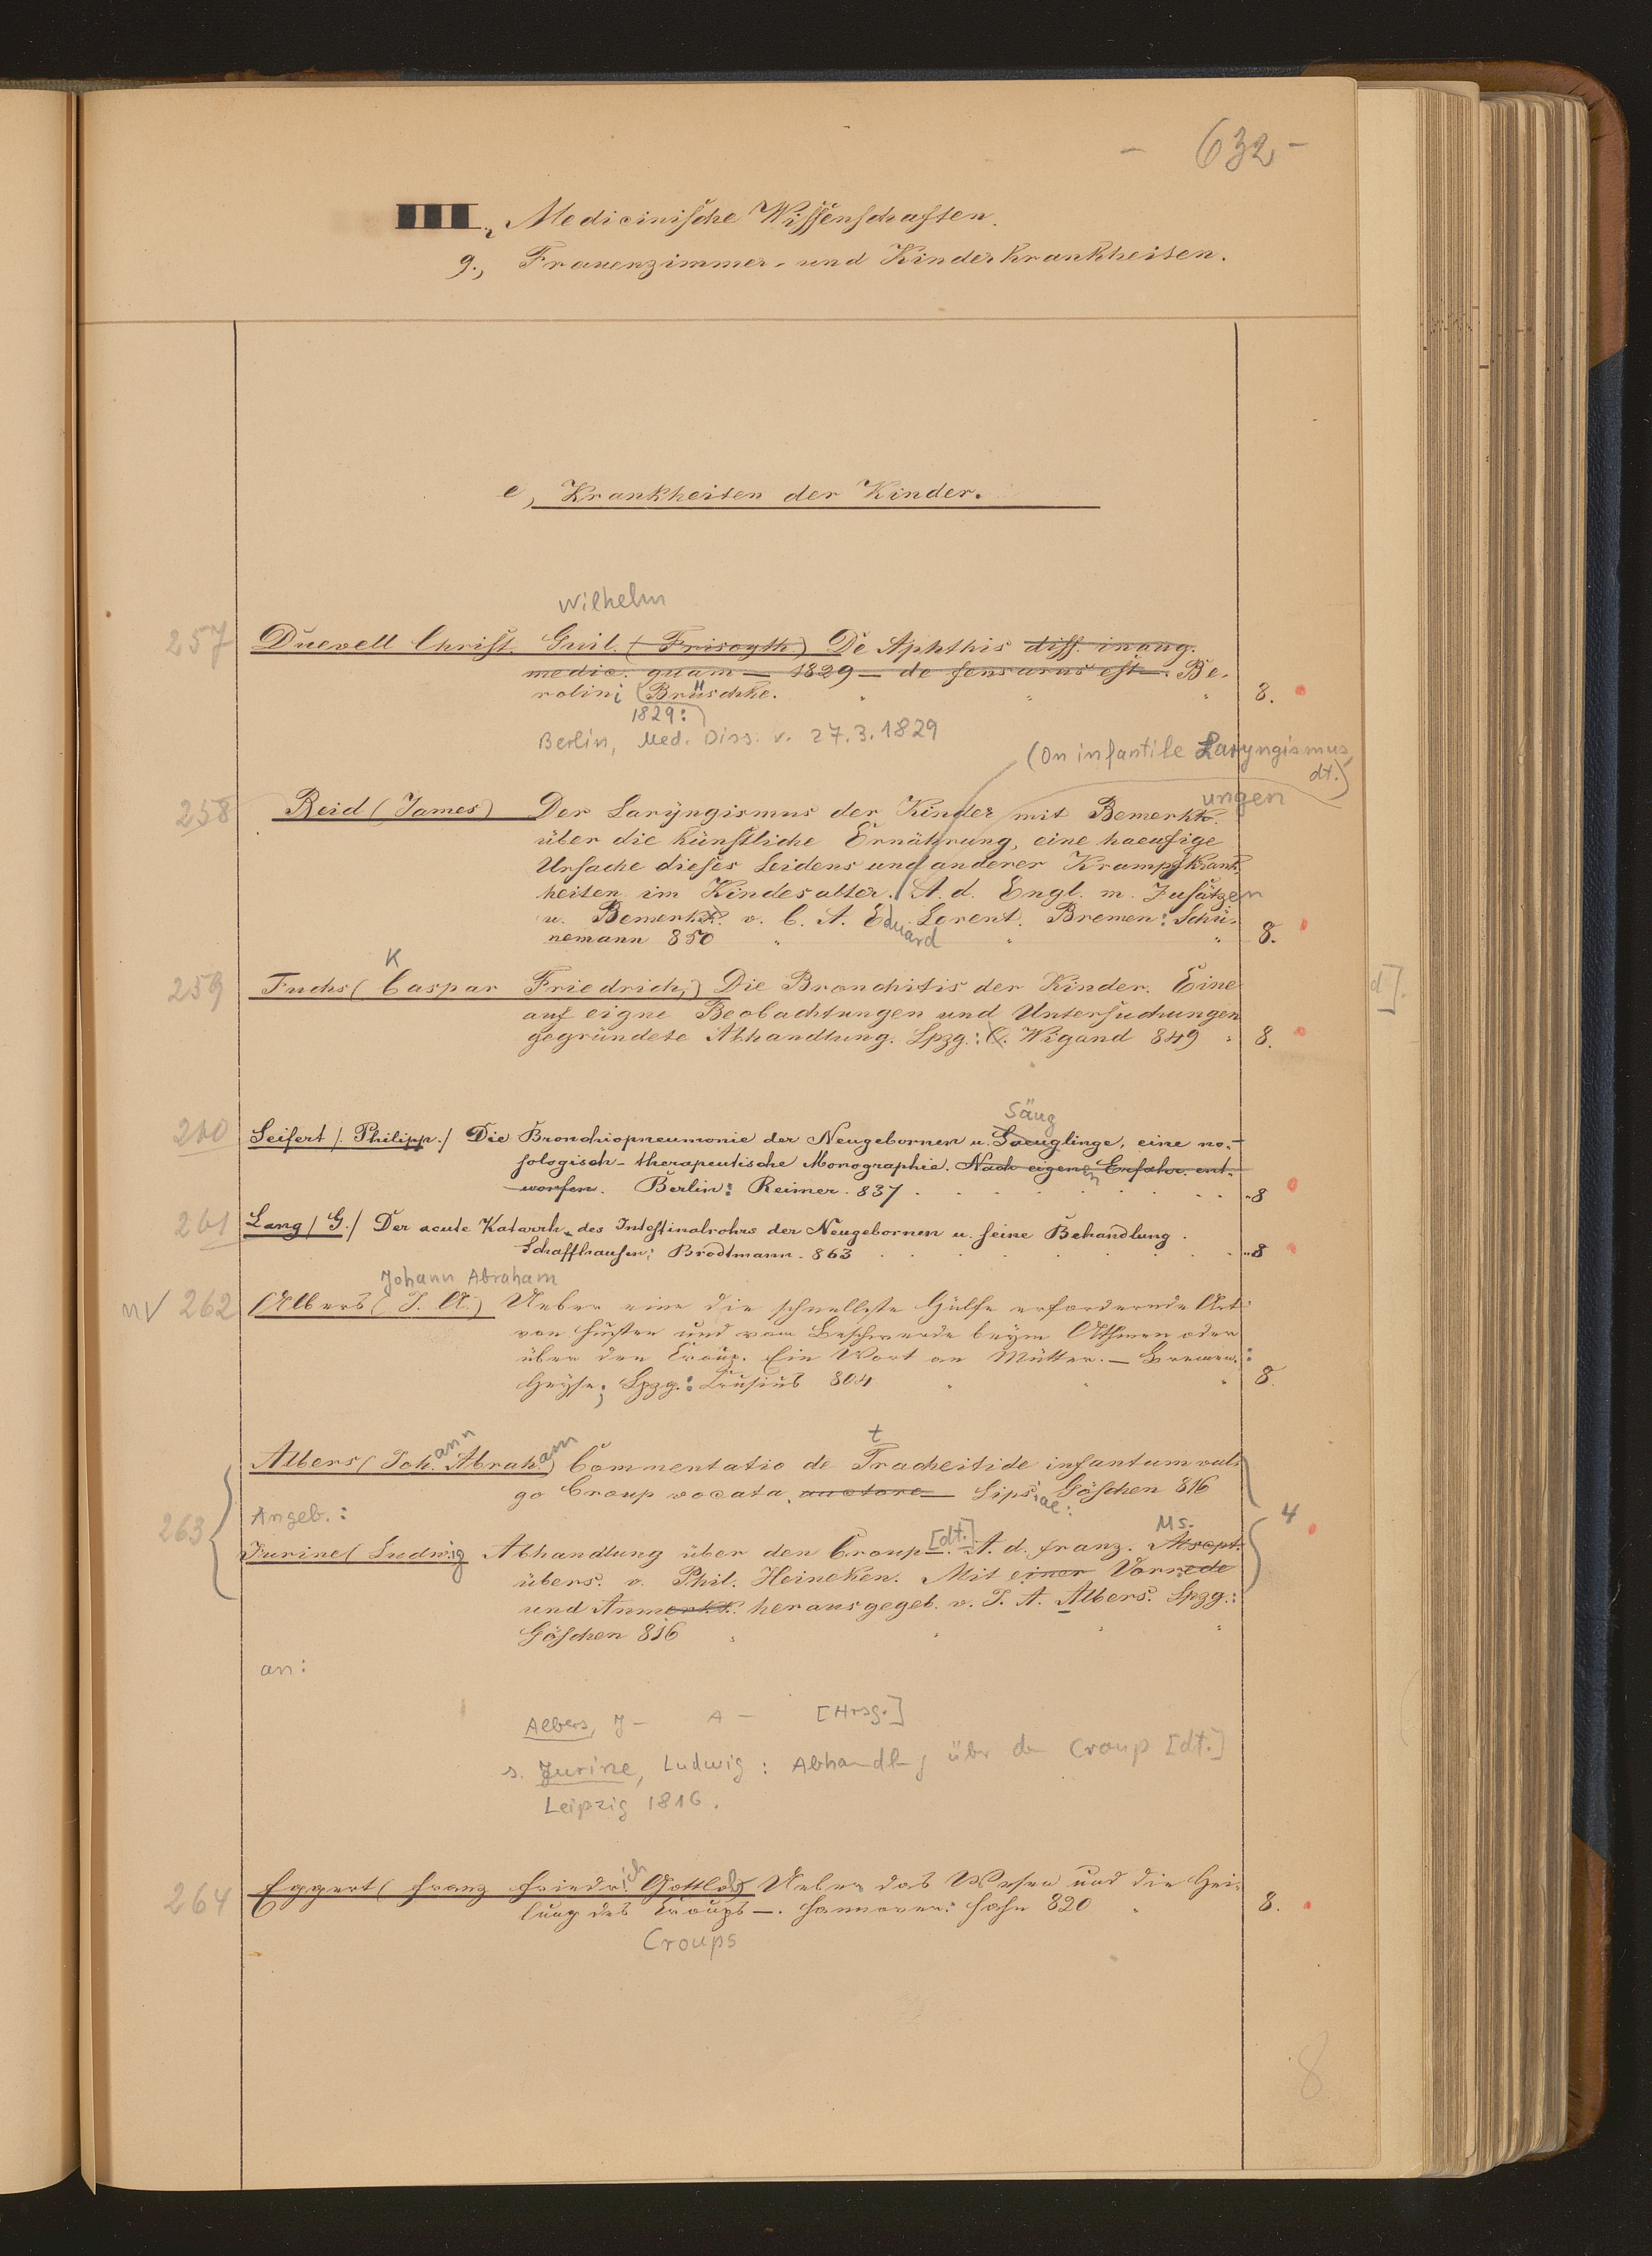 - 632 -
III., Medicinische Wissenschaften.
g., Frauenzimmer- und Kinderkrankheiten.
e, Krankheiten der Kinder.
Wilhelm
257 Duevell Christ. Guil. De Aphthis diss. inaug.
medic. quam — 1829 — defensurus est —. Be-
rolini (Brüschke. 8.
1829:)
Berlin, Med. Diss. v. 27.3.1829
(On infantile Laryngismus,
dt.)
ungen
258 Reid (James) Der Laryngismus der Kinder mit Bemerkk.
über die künstliche Ernährung, eine haeufige
Ursache dieses Leidens und anderer Krampfkrank-
heiten im Kindesalter. A. d. Engl. m. Zusätzen
u. Bemerkk. v. C. A. Eduard Lorent. Bremen: Schü-
nemann 850 8.
K
259 Fuchs (Caspar Friedrich,) Die Bronchitis der Kinder. Eine
auf eigne Beobachtungen und Untersuchungen
gegründete Abhandlung. Lpzg.: O. Wigand 849 8.
d].
Säug
260 Seifert /. Philipp./ Die Bronchiopneumonie der Neugebornen u. Saeuglinge, eine no-
sologisch-therapeutische Monographie. Nach eigenen Erfahr. ent-
worfen. Berlin: Reimer. 837. 8
261 Lang / G./ Der acute Katarrh des Intestinalrohrs der Neugebornen u. seine Behandlung.
Schaffhausen: Brodtmann. 863 8
Johann Abraham
nv 262 Albers (J. A.) Ueber eine die schnellste Hülfe erfordernde Art
von Husten und von Beschwerde beym Athmen oder
über den Croup. Ein Wort an Mütter. — Bremen:
Heyse; Lpzg.: Crusius 804 8.
t
Albers (Johann Abraham) Commentatio de Tracheitide infantum vul-
go Croup vocata, auctore — Lipsiae: Göschen 816
263 Angeb.: 4
Ms.
Jurine (Ludwig Abhandlung über den Croup —. [dt.] A. d. franz. Mscpt.
übers. v. Phil. Heineken. Mit einer Vorrede
und Anmerkk. herausgegeb. v. J. A. Albers. Lpzg.:
Göschen 816
an:
Albers, J- A- [Hrsg.]
s. Jurine, Ludwig: Abhandlg über den Croup [dt.]
Leipzig 1816.
264 Eggert (Franz Friedrich Gottlob) Ueber das Wesen und die Hei-
lung des Croups —. Hannover: Hahn 820 8.
Croups
8